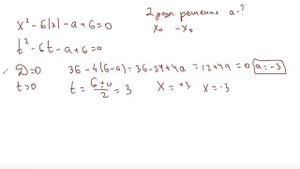 x² - 6|x| - a + 6 = 0
2 разл решения a - ?
x₀ - x₀
t² - 6t - a + 6 = 0
D = 0 36 - 4(6-a) = 36 - 24 + 4a = 12 + 4a = 0 a = -3
t > 0 t = (6 ± 0)/2 = 3 x = +3 x = -3